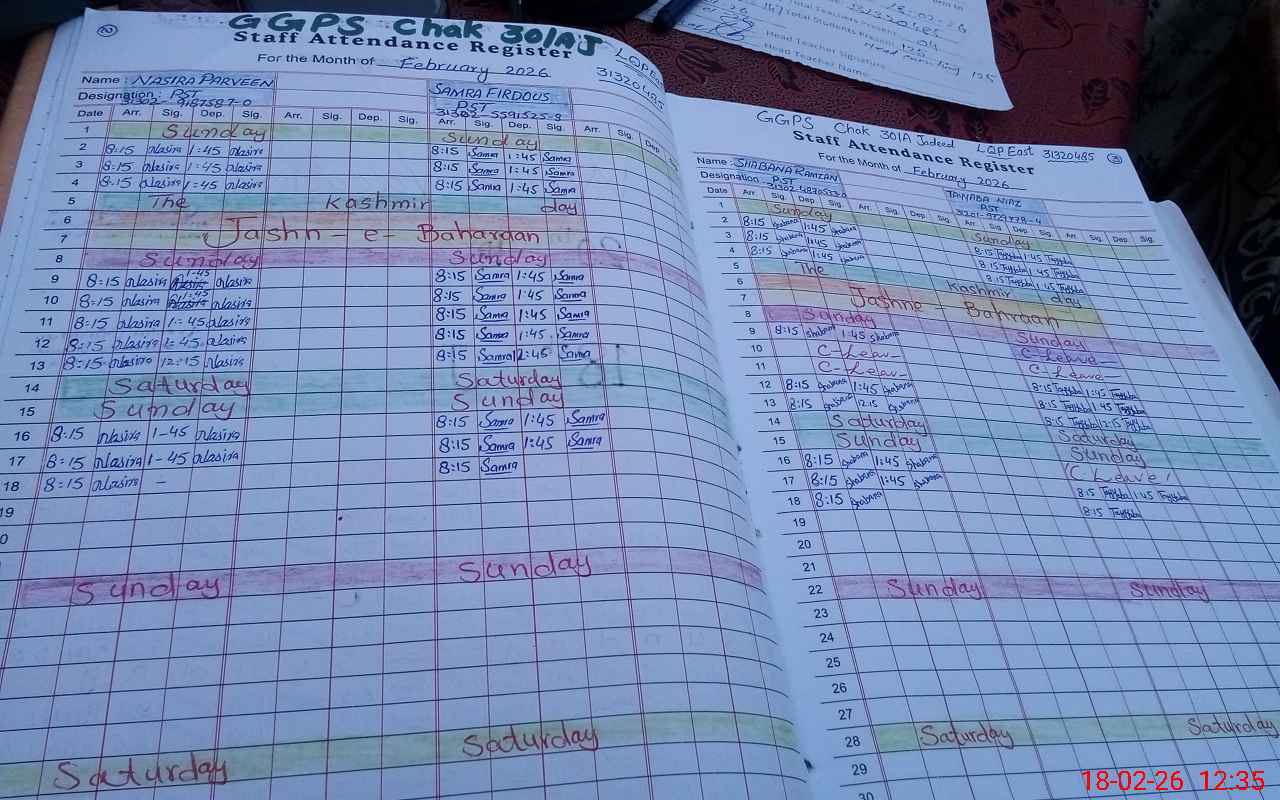 GGPS Chak 301AJ
Staff Attendance Register
LQP East
For the Month of February 2026
31320485
Name : NASIRA PARVEEN SAMRA FIRDOUS
Designation : PST PST
Date Arr. Sig. Dep. Sig. Arr. Sig. Dep. Sig. Arr. Sig. Dep. Sig. Arr. Sig. Dep
1 Sunday Sunday
2 8:15 Nasira 1:45 Nasira 8:15 Samra 1:45 Samra
3 8:15 Nasira 1:45 Nasira 8:15 Samra 1:45 Samra
4 8:15 Nasira 1:45 Nasira 8:15 Samra 1:45 Samra
5 The Kashmir day
6
7 Jashn-e-Baharaan
8 Sunday Sunday
9 8:15 Nasira 1:45 Nasira 8:15 Samra 1:45 Samra
10 8:15 Nasira 1:45 Nasira 8:15 Samra 1:45 Samra
11 8:15 Nasira 1:45 Nasira 8:15 Samra 1:45 Samra
12 8:15 Nasira 1:45 Nasira 8:15 Samra 1:45 Samra
13 8:15 Nasira 12:15 Nasira 8:15 Samra 12:45 Samra
14 Saturday Saturday
15 Sunday Sunday
16 8:15 Nasira 1-45 Nasira 8:15 Samra 1:45 Samra
17 8:15 Nasira 1-45 Nasira 8:15 Samra 1:45 Samra
18 8:15 Nasira - 8:15 Samra
19
Sunday Sunday
Saturday Saturday
GGPS Chak 301A Jadeed LQP East 31320485 3
Staff Attendance Register
For the Month of February 2026
Name : SHABANA RAMZAN NIAZ
Designation : PST PST
Date Arr. Sig. Dep. Sig. Arr. Sig. Dep. Sig. Arr. Sig. Dep. Sig. Arr. Sig. Dep. Sig.
1 Sunday Sunday
2 8:15 Shabana 1:45 Shabana 8:15 1:45
3 8:15 Shabana 1:45 Shabana 8:15 1:45
4 8:15 Shabana 1:45 Shabana 8:15 1:45
5 The Kashmir day
6
7 Jashne - Bahraan
8 Sunday Sunday
9 8:15 Shabana 1:45 Shabana C-Leave
10 C-Leav- C-Leave
11 C-Leav- 8:15 1:45
12 8:15 Shabana 1:45 Shabana 8:15 1:45
13 8:15 Shabana 12:15 Shabana 8:15 12:15
14 Saturday Saturday
15 Sunday Sunday
16 8:15 Shabana 1:45 Shabana C-Leave
17 8:15 Shabana 1:45 Shabana 8:15 1:45
18 8:15 Shabana 8:15
19
20
21
22 Sunday Sunday
23
24
25
26
27
28 Saturday Saturday
29
30
147 Total Students Present
Head Teacher Signature
Head Teacher Name
18-02-26 12:35